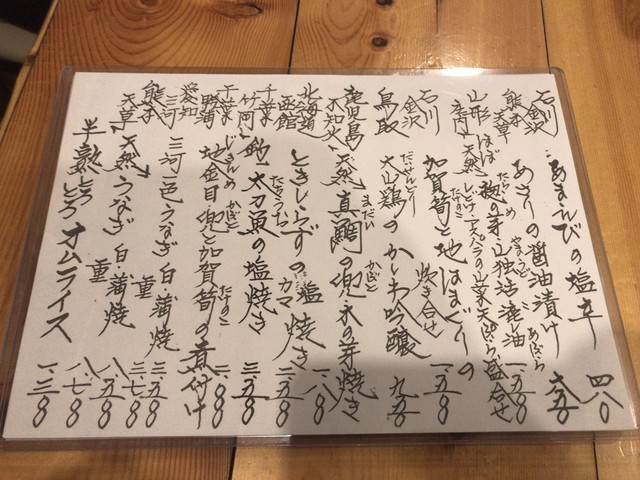 石川 金沢 あまえびの塩辛 四八〇
熊本 天草 あさりの醤油漬け 六五〇
山形 天然 たらの芽 山独活 山菜天ぷら盛合せ 一.五八〇
石川 金沢 加賀筍と地はまぐりの炊き合せ 一.五八〇
鳥取 大山鶏のかしわ吟醸 九五〇
鹿児島 不知火 天然真鯛の兜 木の芽焼き 一.八〇
北海道 函館 ときしらずの塩焼き カマ 二.五八〇
千葉 竹岡 釣太刀魚の塩焼き 三.五八〇
千葉 地金目兜と加賀筍の煮付け 一.八〇
愛知 三河 三河一色うなぎ 白蒲焼 三.五八〇
重 三.七八〇
熊本 天草 天然うなぎ 白蒲焼 八.五八〇
重 八.七八〇
半熟とろとろオムライス 一.三八〇